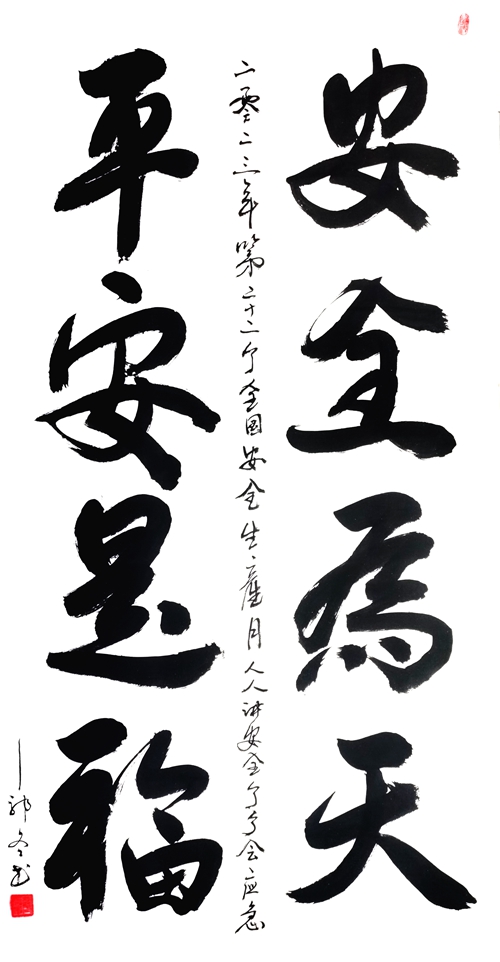 安全為天
二零二三年第二十二个全国安全生產月人人讲安全个个会应急
平安是福